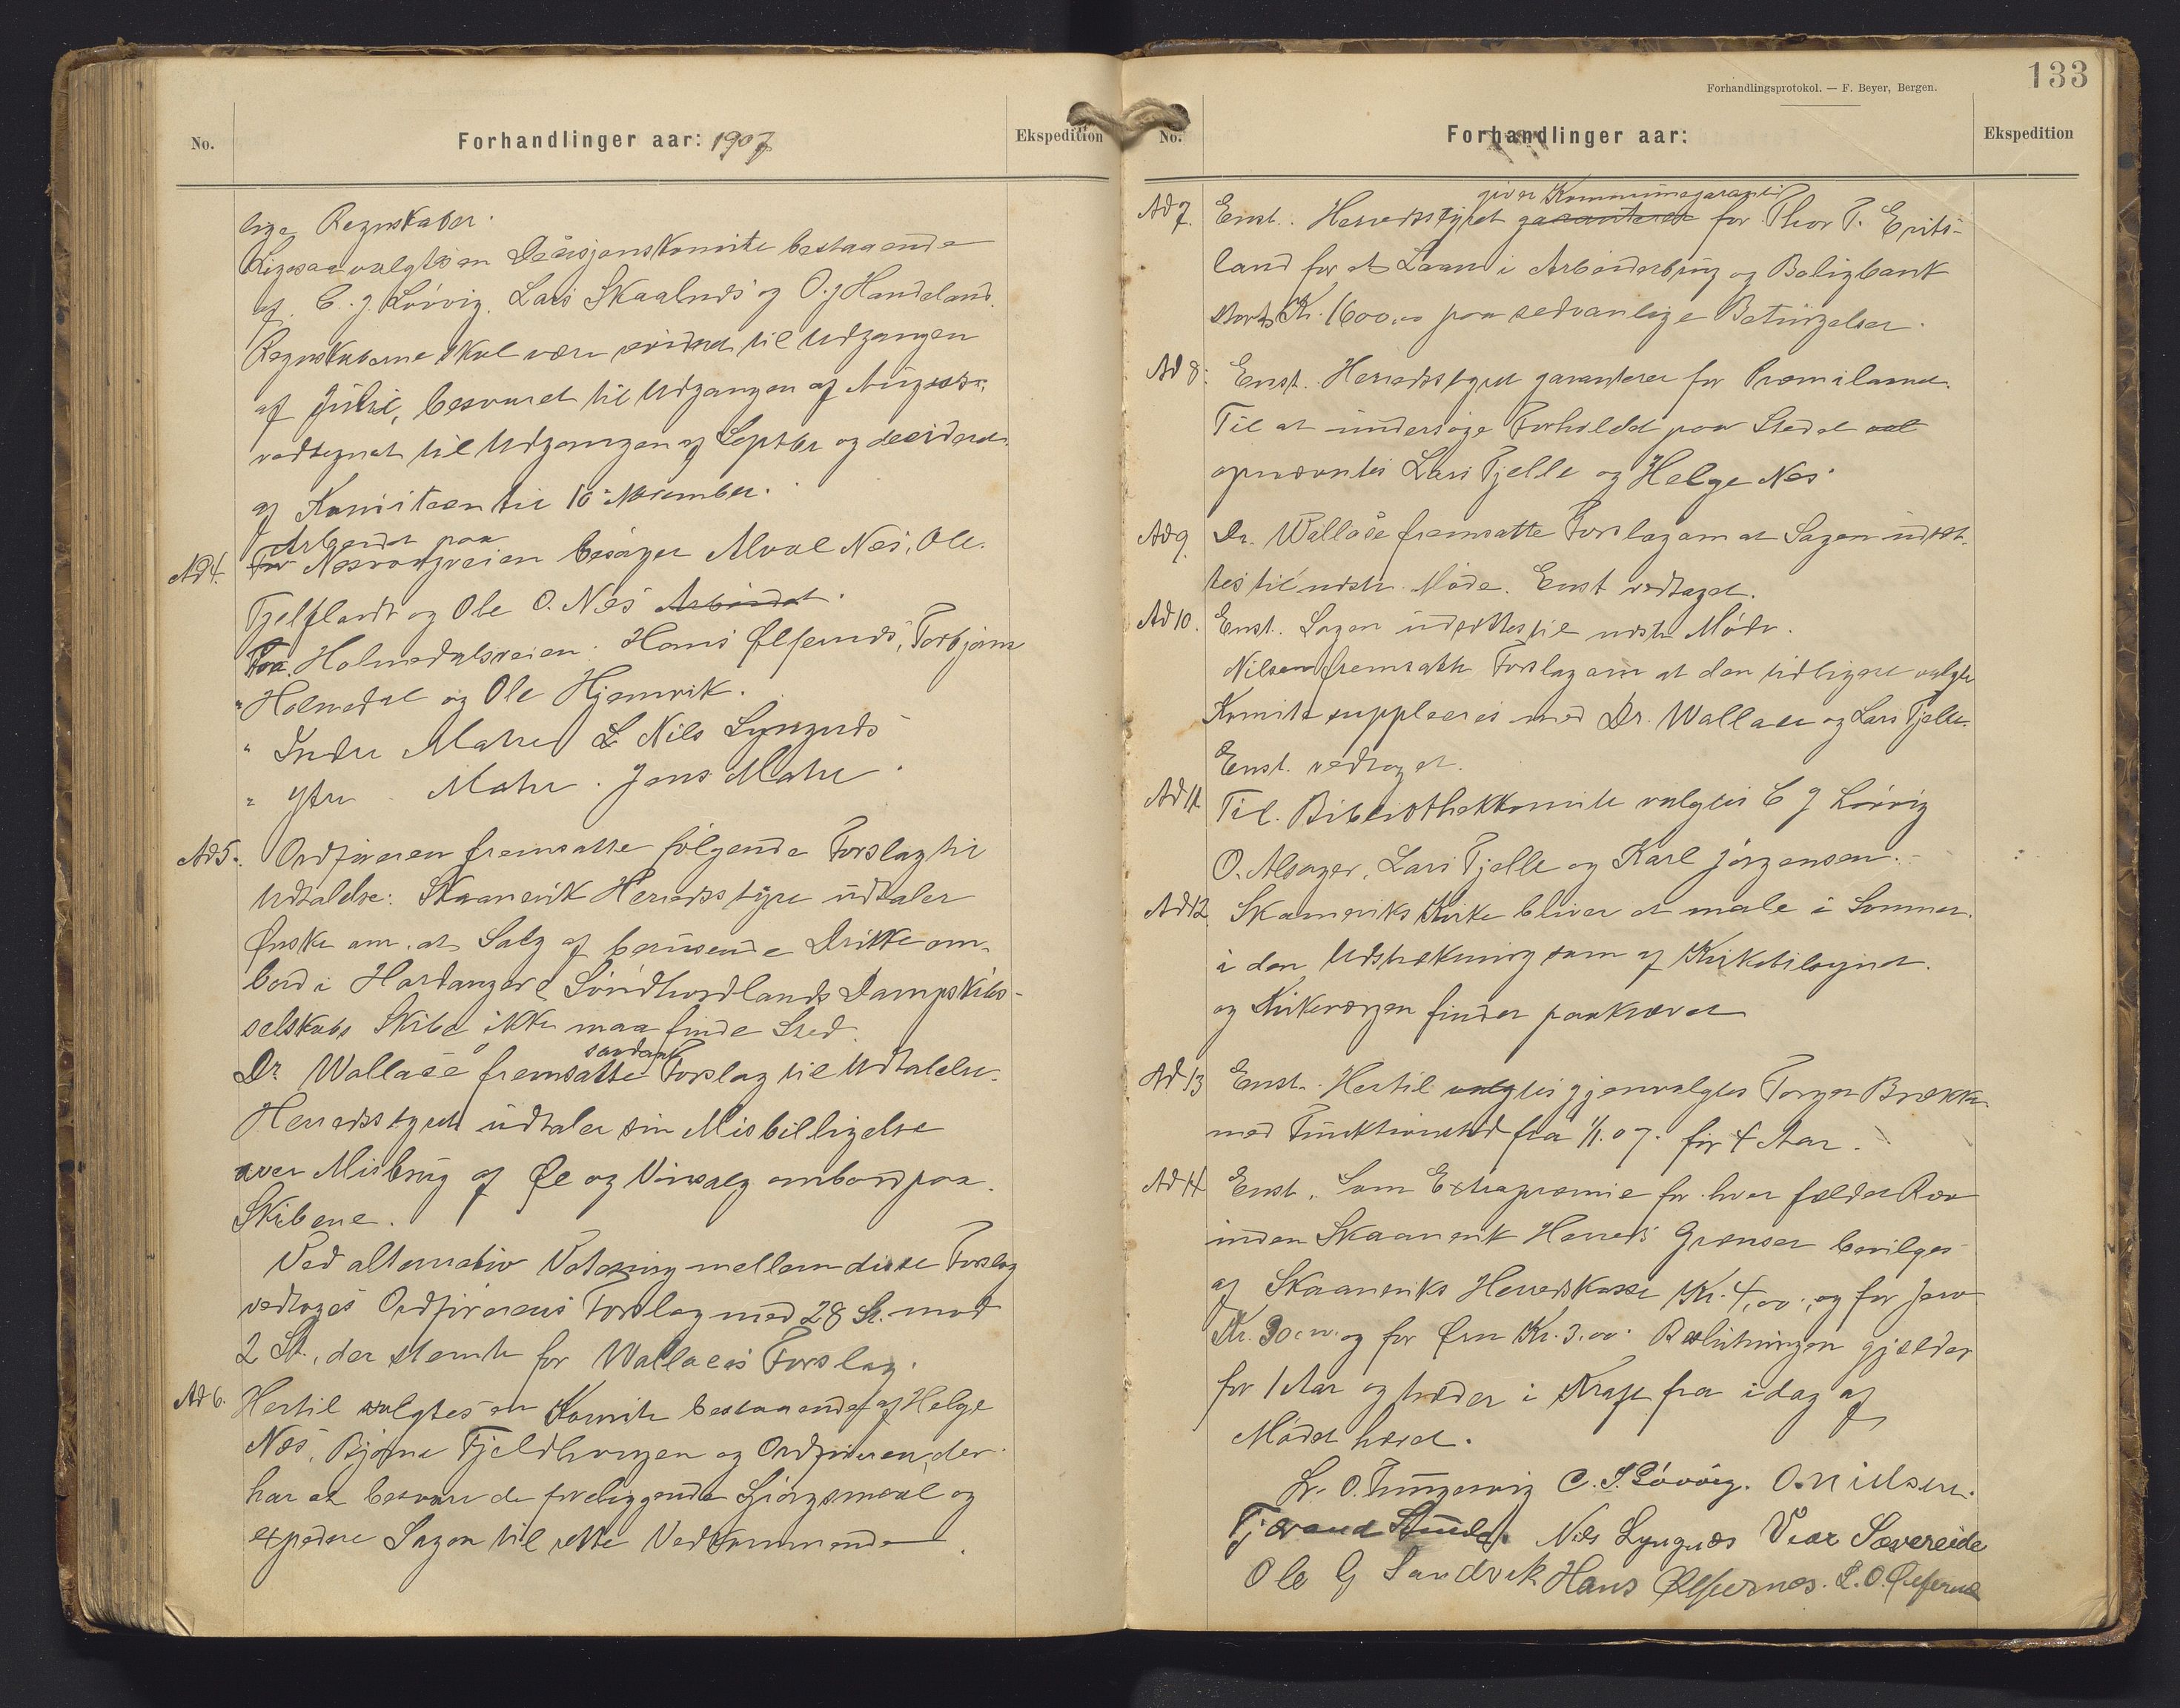 No.
Forhandlinger aar: 1907
Ekspedition
lige Regnskaber.
Ligesaa valgtes en Desisjonskomite bestaaende
af C. J. Løvvig, Lars Skaalnes og O. J Handeland.
Regnskaberne skal være revideret til Udgangen
af Juli, besvaret til Udgangen af August,
vedtegnet til Udgangen af Septbr og desideret
af Komiteen til 10 November.
Arbeidet paa
Ad 4. For Nesvaagveien besørger Alvae Nes, Ole
Fjelflaadt og Ole O. Nes Arbeidet.
For Holmedalsveien: Hans Ølfernes, Torbjørn
" Holmedal og Ole Hjemvik.
" Indre Matre L Nils Lyngnes
" Ytre Matre. Jens Matre.
Ad 5. Ordføreren fremsatte følgende Forslag til
Udtalelse: Skaanevik Herredsstyre udtaler
Ønske om, at Salg af berusende Drikke om-
bord i Hardanger & Søndhordlands Dampskibs-
selskabs Skibe ikke maa finde Sted.
saadant
Dr. Wallase fremsatte Forslag til Udtalelse.
Herredsstyret udtaler sin Misbilligelse
over Misbrug af Øl og Vinsalg ombord paa
Skibene.
Ved alternativ Votering mellem disse Forslag
vedtoges Ordførerens Forslag med 28 St. mod
2 St., der stemte for Wallaces Forslag.
Ad 6. Hertil valgtes en Komite bestaaende af Helge
Nes, Bjørne Fjeldhaugen og Ordføreren, der
har at besvare de foreliggende Spørgsmaal og
expedere Sagen til rette Vedkommende.
133
Forhandlingsprotokol. — F. Beyer, Bergen.
No.
Forhandlinger aar:
Ekspedition
giver Kommunegaranti
Ad 7. Enst. Herredsstyret garanterer for Thor T. Erits-
land for et Laan i Arbeiderbrug og Boligbank
stort Kr. 1600,00 paa sedvanlige Betingelser.
Ad 8. Enst. Herredsstyret garanterer for Præmilaanet.
Til at undersøge Forholdet paa Stedet val
opnævntes Lars Fjelle og Helge Nes
Ad 9. Dr. Wallase fremsatte Forslag om at Sagen udsæt-
tes til næste Møde. Enst vedtaget.
Ad 10. Enst. Sagen udsættes til næste Møde.
Nilsen fremsatte Forslag om at den tidligere valgte
Komite suppleeres med Dr. Wallace og Lars Fjelle.
Enst. vedtaget.
Ad 11. Til Bibliothekkomite valgtes C J Løvvig
O. Alsager, Lars Fjelle og Karl Jørgensen.
Ad 12. Skaaneviks Kirke bliver at male i Sommer
i den Udstrekning som af Kirketilsynet
og Kirkevergen finder paakrævet
Ad 13 Enst. Hertil valgtes gjenvalgtes Torger Brekke
med Funktionstid fra 1/1. 07. for 4 Aar.
Ad 14 Enst. Som Extrapræmie for hver fældet Ræv
inden Skaanevik Herreds Grænser bevilges
af Skaaneviks Herredskasse Kr. 4,00, og for Jerv
Kr. 30,00. og for Ørn Kr. 3.00. Beslutningen gjælder
for 1 Aar og træder i Kraft fra idag af
Mødet hævet.
L. O. Tungesvig C. J. Løvvig. O. Nielsen.
Tjerand Stuelr. Nils Lyngnæs Vear Sævereide
Ole G Sandvik Hans Ølfernæs. L. O. Ølfernæs